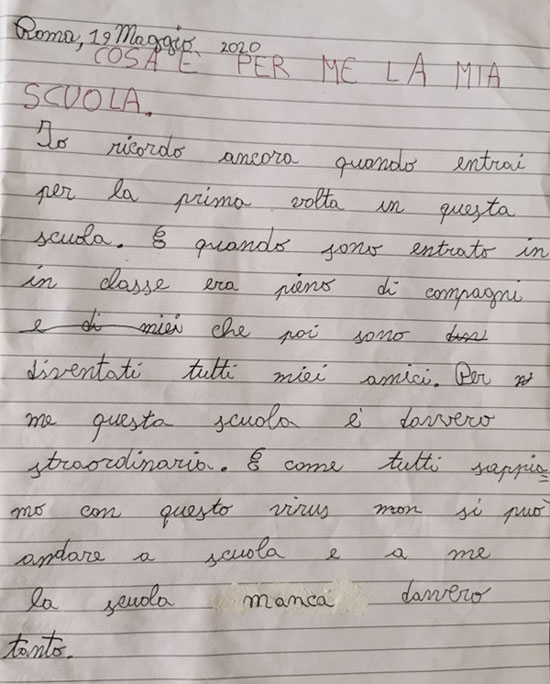 Roma, 19 Maggio 2020
COSA È PER ME LA MIA
SCUOLA.
Io ricordo ancora quando entrai
per la prima volta in questa
scuola. E quando sono entrato in
in classe era pieno di compagni
e di miei che poi sono
diventati tutti miei amici. Per
me questa scuola è davvero
straordinaria. E come tutti sappia=
mo con questo virus non si può
andare a scuola e a me
la scuola manca davvero
tanto.